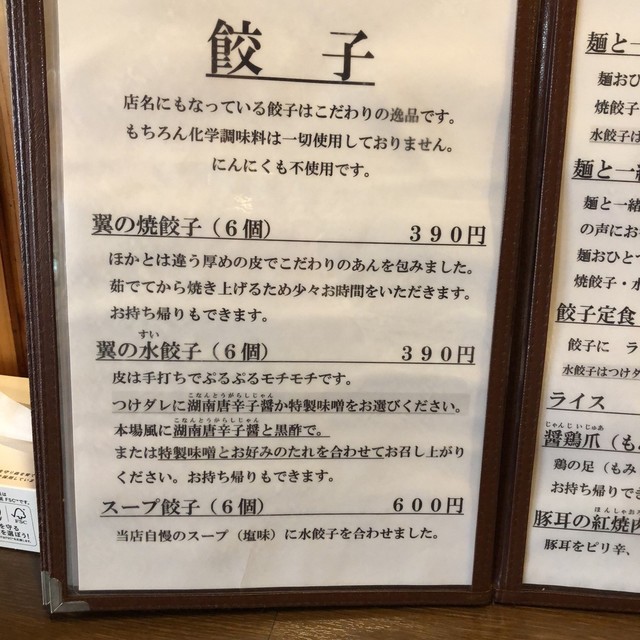 餃子
店名にもなっている餃子はこだわりの逸品です。
もちろん化学調味料は一切使用しておりません。
にんにくも不使用です。
翼の焼餃子（６個） ３９０円
ほかとは違う厚めの皮でこだわりのあんを包みました。
茹でてから焼き上げるため少々お時間をいただきます。
お持ち帰りもできます。
すい
翼の水餃子（６個） ３９０円
皮は手打ちでぷるぷるモチモチです。
こなんとうがらしじゃん
つけダレに湖南唐辛子醤か特製味噌をお選びください。
こなんとうからしじゃん
本場風に湖南唐辛子醤と黒酢で。
または特製味噌とお好みのたれを合わせてお召し上がり
ください。お持ち帰りもできます。
スープ餃子（６個） ６００円
当店自慢のスープ（塩味）に水餃子を合わせました。
麺と一
麺おひ
焼餃子
水餃子は
麺と一緒
麺と一緒
の声にお
麺おひと
焼餃子・水
餃子定食
餃子に ラ
水餃子はつけダ
ライス
じゃんじいじゅあ
醤鶏爪（も
鶏の足（もみ
お持ち帰りでき
ほんしゃお
豚耳の紅焼肉
豚耳をピリ辛、
FSC
を守る
を選ぼう！